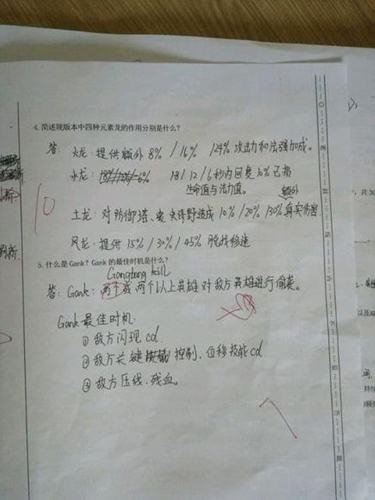 4. 简述现版本中四种元素龙的作用分别是什么?
答: 火龙: 提供额外 8% / 16% / 24% 攻击力和法强加成。
水龙: 18 / 12 / 6 秒内回复 10% 已损
生命值与法力值。
额外
土龙: 对防御塔、史诗野怪造成 10% / 20% / 30% 真实伤害
风龙: 提供 15% / 30% / 45% 脱战移速
10
5. 什么是Gank? Gank的最佳时机是什么?
Gangbang kill
答: Gank: 两个或两个以上英雄对敌方英雄进行偷袭。
Gank 最佳时机:
① 敌方闪现 cd.
② 敌方关键控制、位移技能 cd
③ 敌方压线、残血。
7